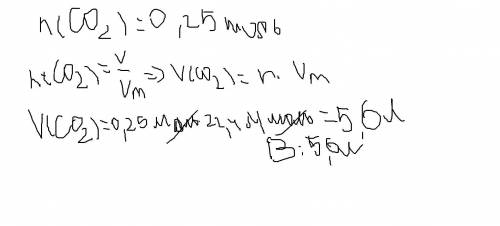 n(CO2)=0,25 моль
n(CO2)=V/Vm => V(CO2)=n·Vm
V(CO2)=0,25 моль·22,4 л/моль=5,6л
В:5,6л